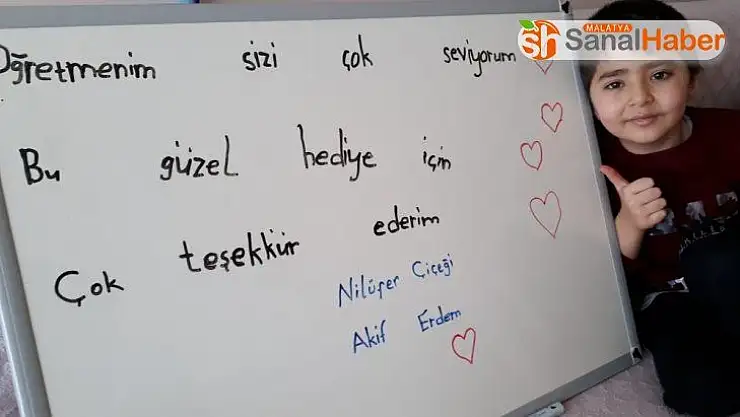 Öğretmenim sizi çok seviyorum
Bu güzel hediye için
Çok teşekkür ederim
Nilüfer Çiçeği
Akif Erdem
MALATYA
sh SanalHaber